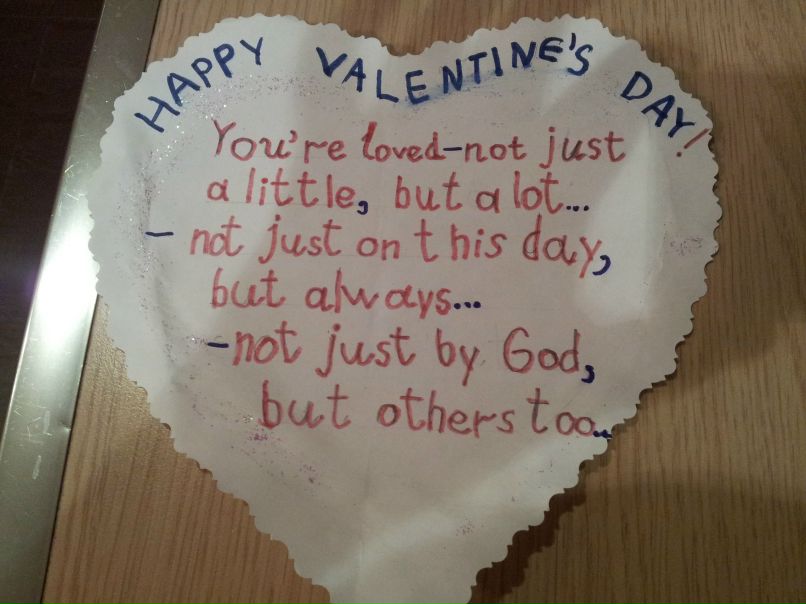 HAPPY VALENTINE'S DAY!
You're loved-not just
a little, but a lot...
- not just on this day,
but always...
-not just by God,
but others too..